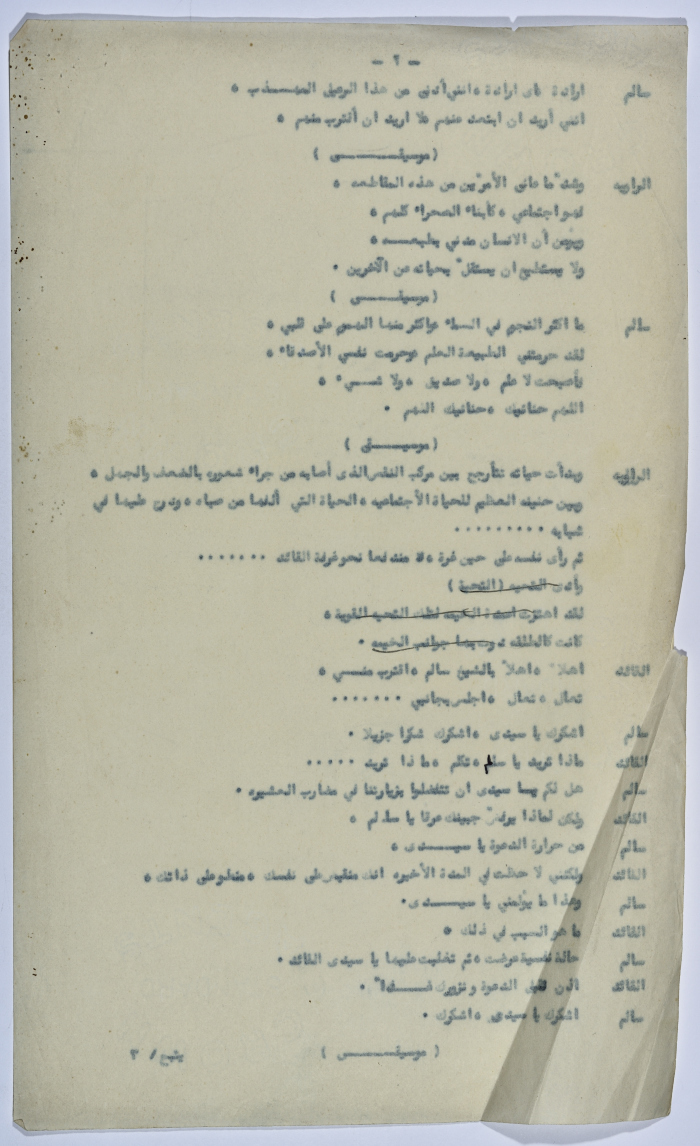 - ٢ -
سالم ارادة اى ارادة ، انني أدنى من هذا الرعيل المهـــذب ٠
انني أريد ان ابتعد عنهم ، لا اريد ان أقترب منهم ٠
( موسيقـــــى )
الراويه وشدّ ما عانى الأمرّين من هذه المقاطعه ٠
فهو اجتماعي ، كأبناء الصحراء كلهم ٠
ويؤمن أن الانسان مدني بطبعـــه ٠
ولا يستطيع ان يستقلّ بحياته عن الآخرين ٠
( موسيقـــــى )
سالم ما اكثر النجم في السماء واكثر منها الهموم على قلبي ٠
لقد حرمتني الطبيعة العلم وحرمت نفسي الأصدقاء ٠
فأصبحت لا علم ، ولا صديق ، ولا شـــيء ٠
اللهم حنانيك ، حنانيك اللهم ٠
( موسيـــــقى )
الراويه وبدأت حياته تتأرجح بين مركب النقص الذى أصابه من جراء شعوره بالضعف والجهل ٠
وبين حنينه العظيم للحياة الأجتماعيه ، الحياة التي ألفها من صباه ، ودرج عليها في
شبابه ٠٠٠٠٠٠٠٠٠
ثم رأى نفسه على حين غرة ، مندفعا نحو غرفة القائد ٠٠٠٠٠٠٠
وأدى التحيه ( التحية )
لقد اهتزت اعمدة الخيمه لتلك التحيه القوية ٠
كانت كالطلقه دوت بها جوانب الخيمه ٠
القائد اهلا ، اهلاً بالشيخ سالم ، اقترب منـــي ٠
تعال ، تعال ، اجلس بجانبي ٠٠٠٠٠٠٠
سالم اشكرك يا سيدى ، اشكرك شكرا جزيلا ٠
القائد ماذا تريد يا سالم ، تكلم ، ماذا تريد ٠٠٠٠٠
سالم هل لكم يــا سيدى ان تتفضلوا بزيارتنا في مضارب العشيره ٠
القائد ولكن لماذا يرفضّ جبينك عرقا يا سالم ٠
سالم من حرارة الدعوة يا سيـــدى ٠
القائد ولكنني لاحظت في المدة الأخيره انك منقبض على نفسك ، منطو على ذاتك ٠
سالم وهذا ما يؤلمني يا سيـــدى ٠
القائد ما هو السبب في ذلك ٠
سالم حالة نفسية عرضت ، ثم تغلبت عليها يا سيدى القائد ٠
القائد اذن نقبل الدعوة ونزورك غـــداً ٠
سالم اشكرك يا سيدى ، اشكرك ٠
( موسيقـــــى )
يتبع / ٣